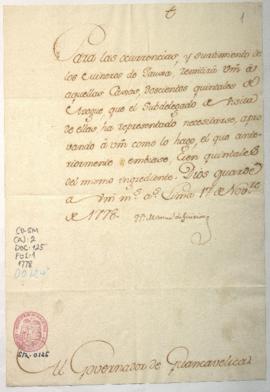 1
Para las ocurrencias, y surtimiento de
los Mineros de Pauxa, remitirá Vm. à
aquellas Caxas, doscientos quintales de
Azogue, que el Subdelegado de Visita
de ellas ha representado necesitarse, apro
vando à Vm. como lo hago, el que ante
riormente embiase Cien quintales
del mismo ingrediente. Dios guarde
à Vm. m.s a.s Lima 17 de Nov.re
de 1778.
CO-SM
CAJ: 2
DOC: 125
FOL: 1
1778
Al Governador de Guancavelica